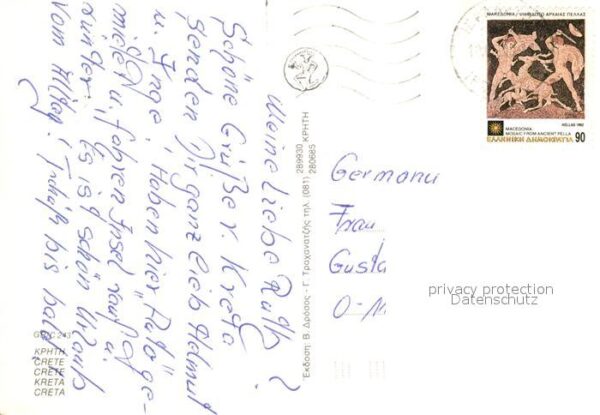 Meine liebe Ruth!
Schöne Grüße v. Kreta
senden Dir ganz lieb Helmut
u. Inge. Haben hier Auto ge-
mietet u. fahren Insel rauf u.
runter. Es ist schön Urlaub
vom Alltag! Tschüß bis bald
GR C 243
ΚΡΗΤΗ
CRETE
CRETE
KRETA
CRETA
Έκδοση: Β. Δρόσος - Γ. Τραχανατζής τηλ. (081) 289930 ΚΡΗΤΗ
280685
ΜΑΚΕΔΟΝΙΑ / ΨΗΦΙΔΩΤΟ ΑΡΧΑΙΑΣ ΠΕΛΛΑΣ
HELLAS 1992
MACEDONIA
MOSAIC FROM ANCIENT PELLA
ΕΛΛΗΝΙΚΗ ΔΗΜΟΚΡΑΤΙΑ 90
Germany
Frau
Gusta
O-M
privacy protection
Datenschutz